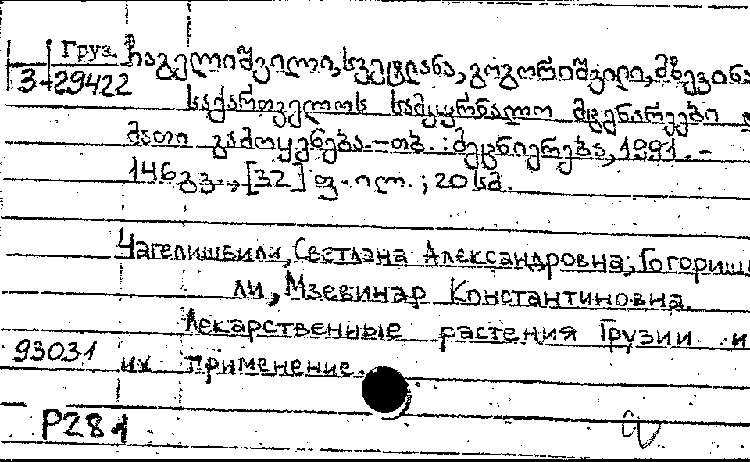 Груз. ჩაგელიშვილი, სვეტლანა, გოგორიშვილი, მზევინა
3-29422
საქართველოს სამკურნალო მცენარეები დ
მათი გამოყენება.-თბ. : მეცნიერება, 1991. -
146 გვ., [32] ფ. ილ. ; 20 სმ.
Чагелишвили, Светлана Александровна; Гогориш
ли, Мзевинар Константиновна.
Лекарственные растения Грузии и
93031 их применение.
Р281